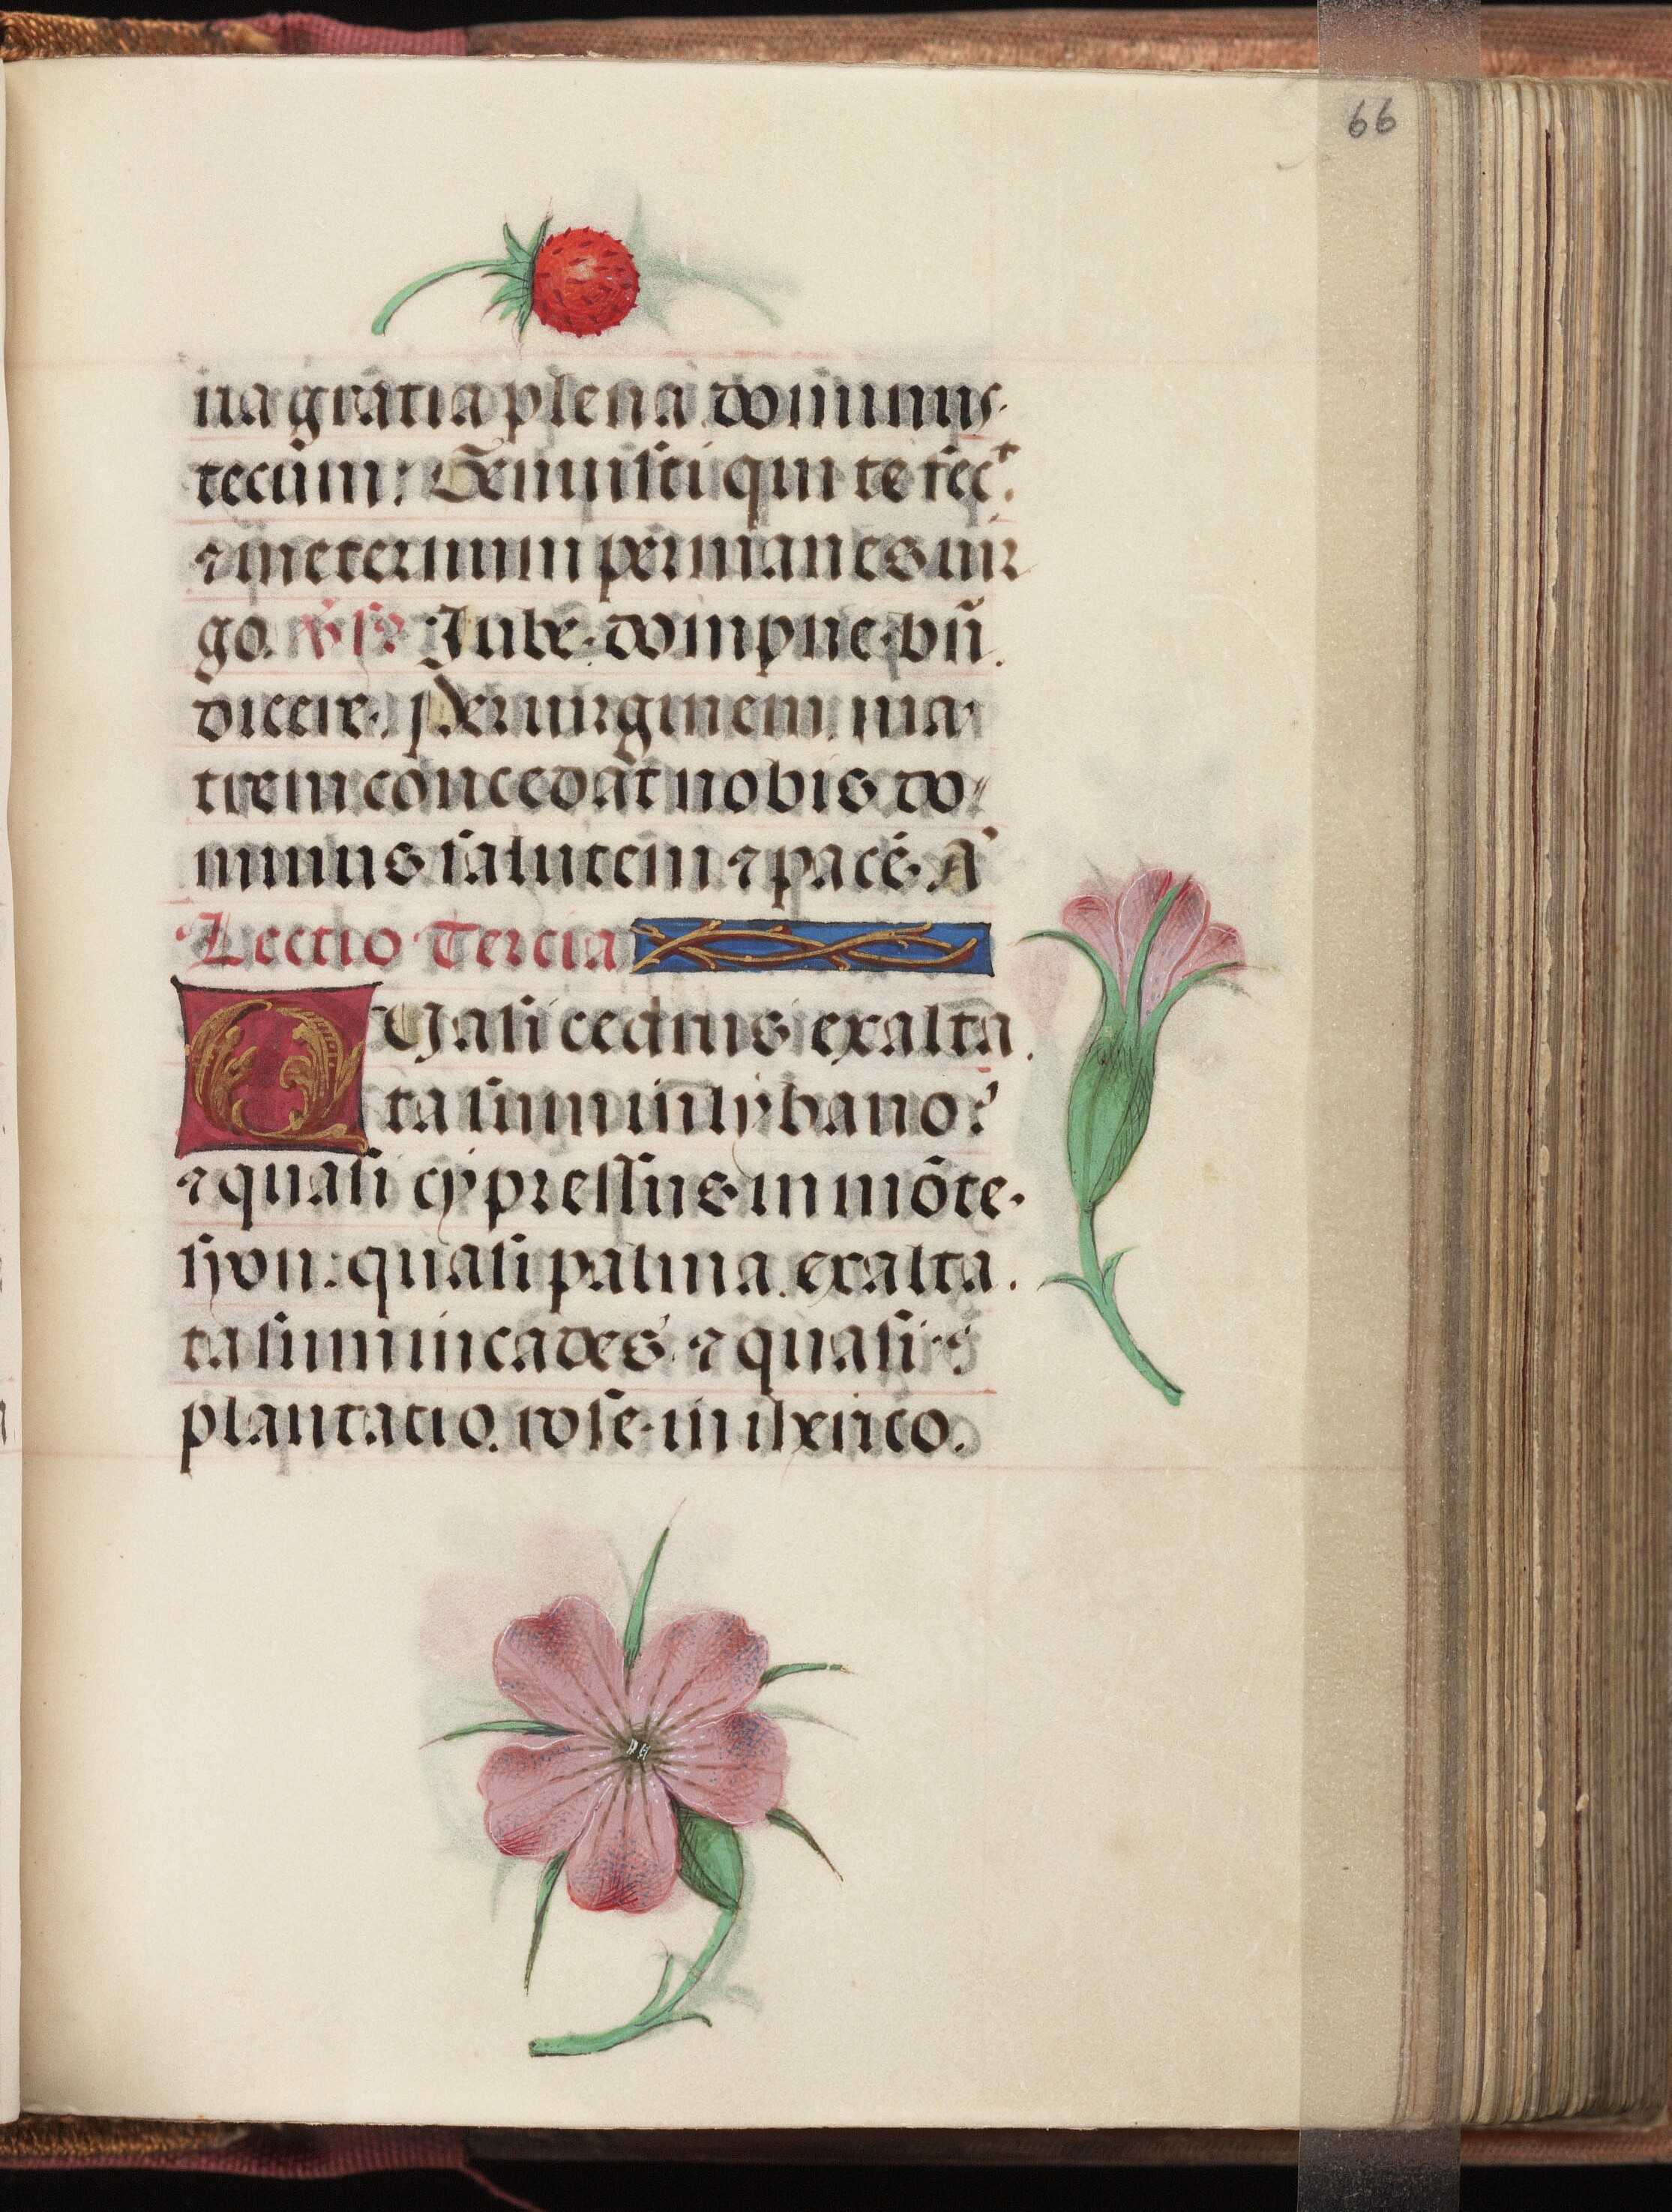 66
ua gratia plena dominus
tecum: Genuisti qui te fec̛.
⁊ in eternum permanes uir
go. v̛s̛. Jube dompne bn̄
dicere. Per uirginem ma
trem concedat nobis do
minus salutem ⁊ pacē. A̛
Lectio Tercia
QUasi cedrus exalta
ta sum in lybano:
⁊ quasi cypressus in mōte
syon: quasi palma exalta
ta sum in cades ⁊ quasi
plantatio rose in iherico.